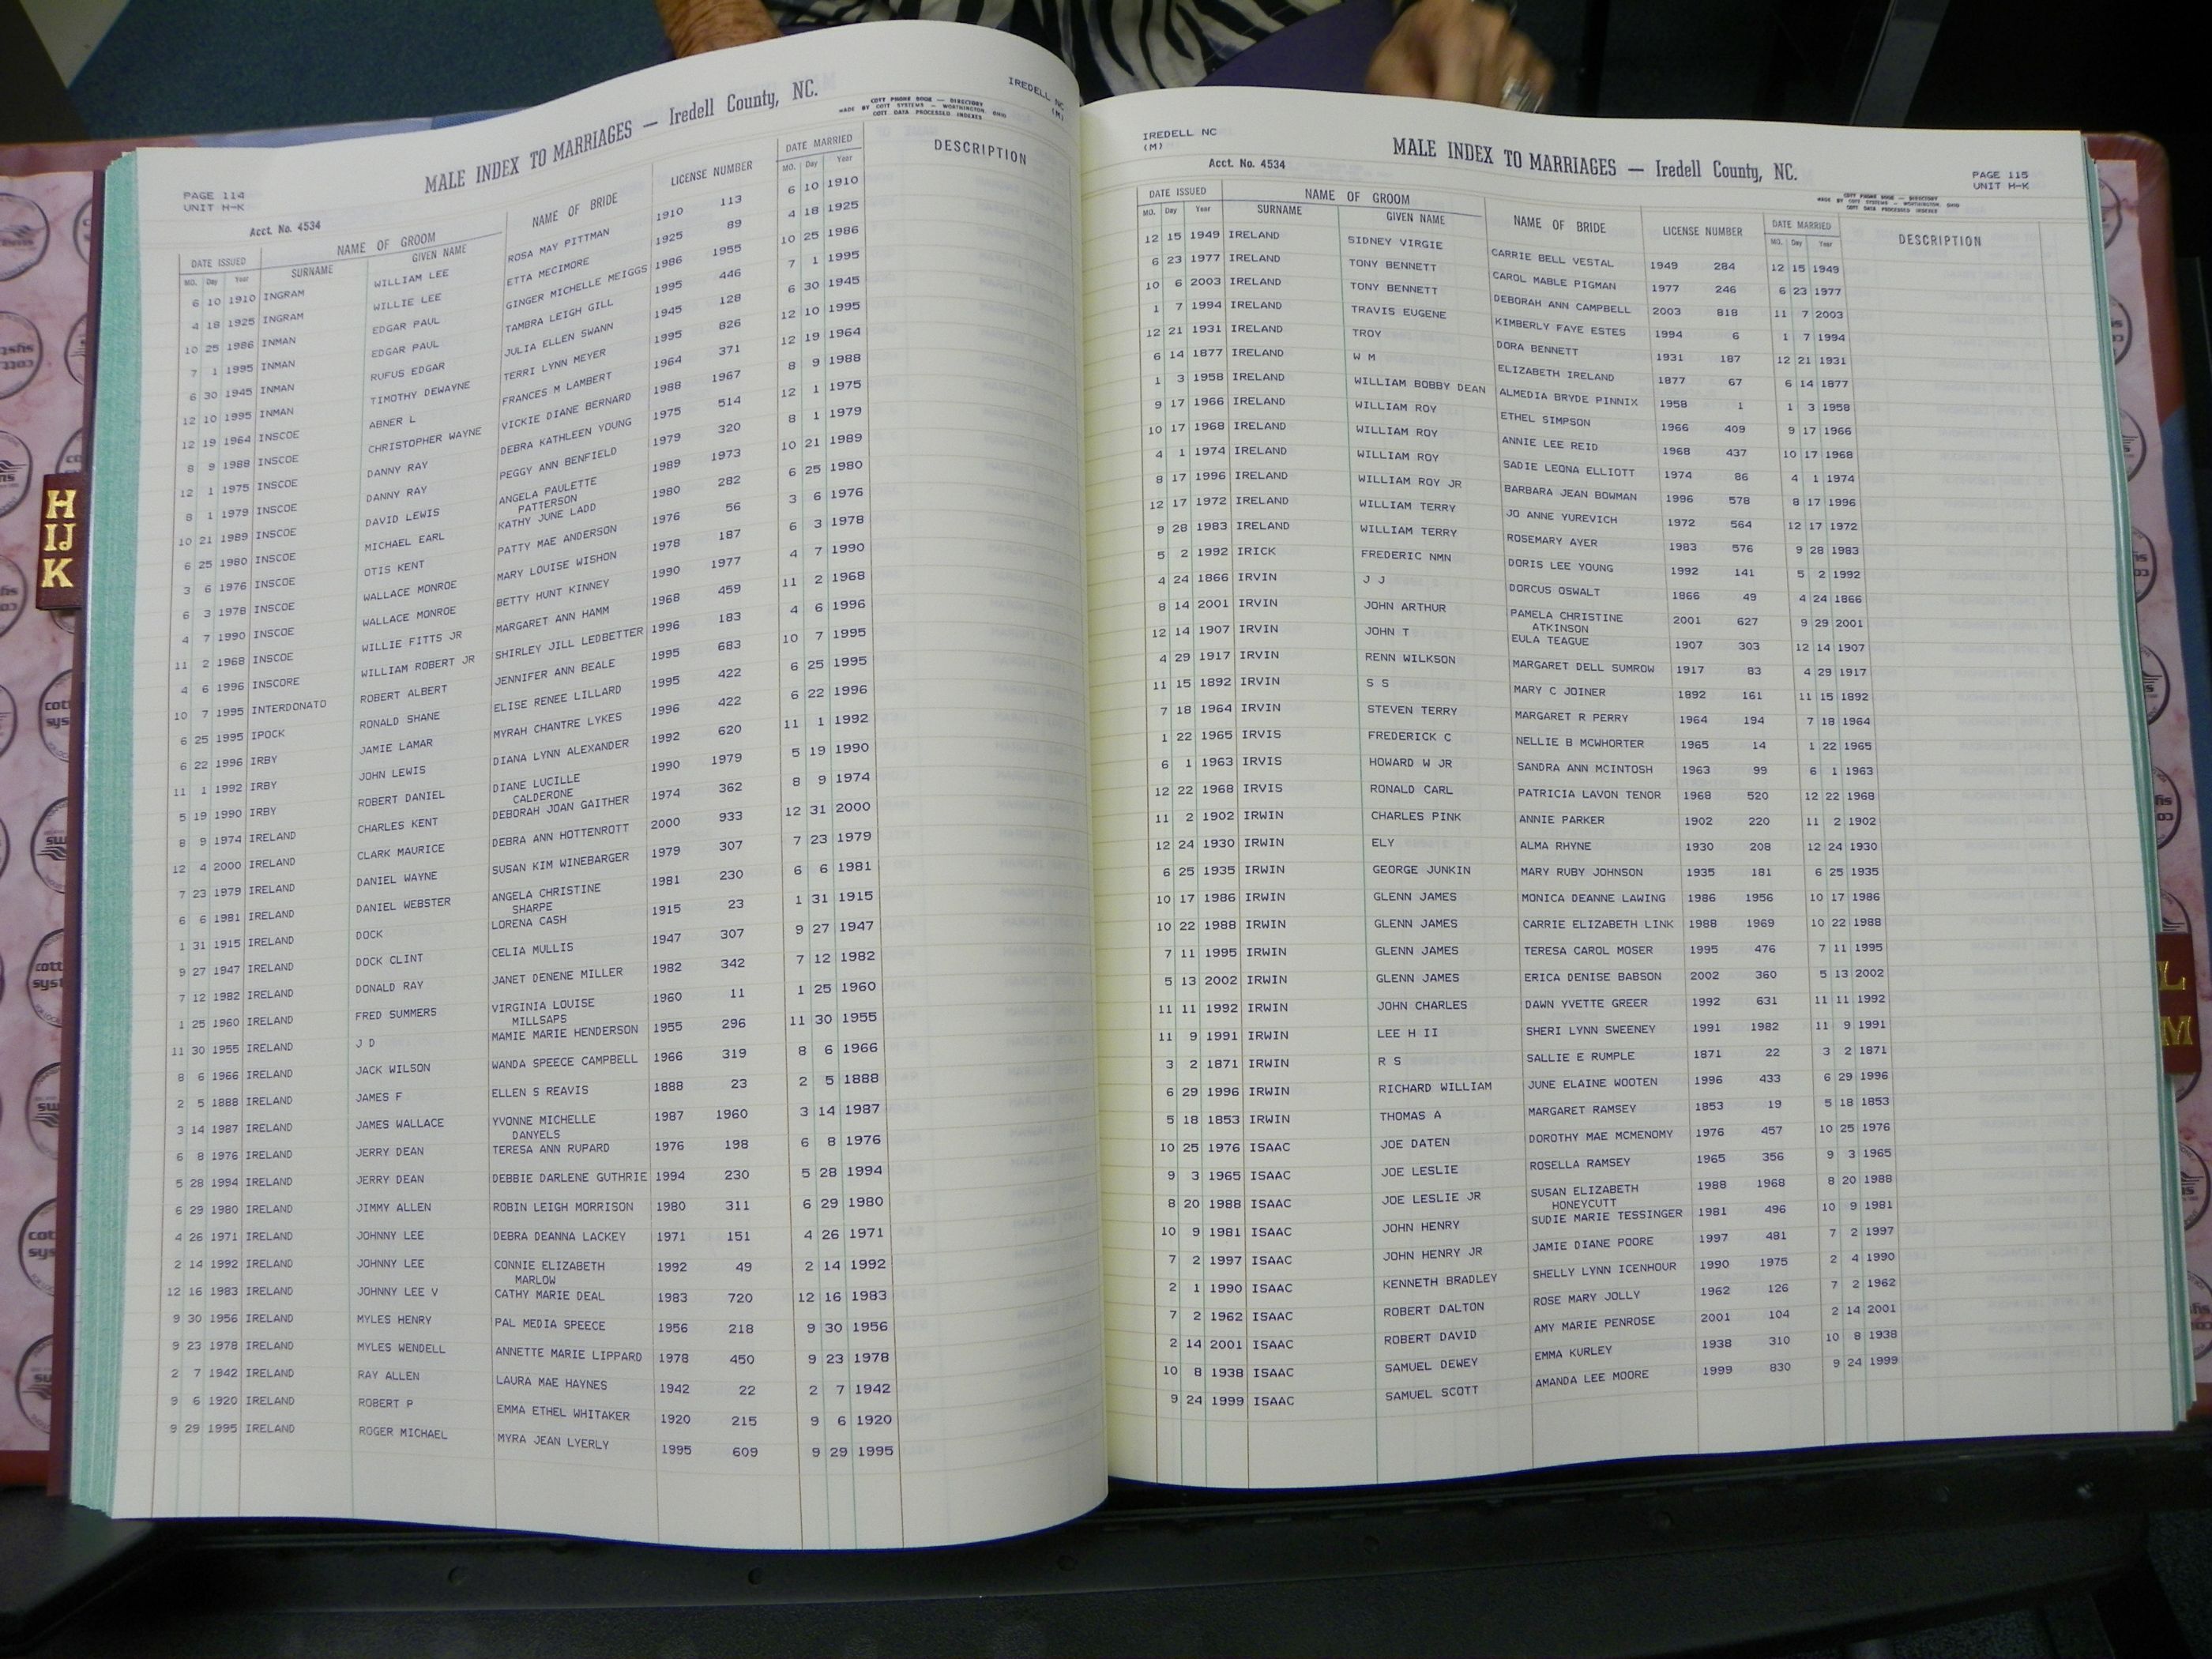 IREDELL NC
(M)
MALE INDEX TO MARRIAGES — Iredell County, NC.
COTT PHONE BOOK — DIRECTORY
MADE BY COTT SYSTEMS — WORTHINGTON, OHIO
COTT DATA PROCESSED INDEXES
PAGE 114
UNIT H-K
Acct. No. 4534
DATE ISSUED NAME OF GROOM NAME OF BRIDE LICENSE NUMBER DATE MARRIED DESCRIPTION
MO. Day Year SURNAME GIVEN NAME MO. Day Year
6 10 1910 INGRAM WILLIAM LEE ROSA MAY PITTMAN 1910 113 6 10 1910
4 18 1925 INGRAM WILLIE LEE ETTA MECIMORE 1925 89 4 18 1925
10 25 1986 INMAN EDGAR PAUL GINGER MICHELLE MEIGGS 1986 1955 10 25 1986
7 1 1995 INMAN EDGAR PAUL TAMBRA LEIGH GILL 1995 446 7 1 1995
6 30 1945 INMAN RUFUS EDGAR JULIA ELLEN SWANN 1945 128 6 30 1945
12 10 1995 INMAN TIMOTHY DEWAYNE TERRI LYNN MEYER 1995 826 12 10 1995
12 19 1964 INSCOE ABNER L FRANCES M LAMBERT 1964 371 12 19 1964
8 9 1988 INSCOE CHRISTOPHER WAYNE VICKIE DIANE BERNARD 1988 1967 8 9 1988
12 1 1975 INSCOE DANNY RAY DEBRA KATHLEEN YOUNG 1975 514 12 1 1975
8 1 1979 INSCOE DANNY RAY PEGGY ANN BENFIELD 1979 320 8 1 1979
10 21 1989 INSCOE DAVID LEWIS ANGELA PAULETTE 1989 1973 10 21 1989
PATTERSON
6 25 1980 INSCOE MICHAEL EARL KATHY JUNE LADD 1980 282 6 25 1980
3 6 1976 INSCOE OTIS KENT PATTY MAE ANDERSON 1976 56 3 6 1976
6 3 1978 INSCOE WALLACE MONROE MARY LOUISE WISHON 1978 187 6 3 1978
4 7 1990 INSCOE WALLACE MONROE BETTY HUNT KINNEY 1990 1977 4 7 1990
11 2 1968 INSCOE WILLIE FITTS JR MARGARET ANN HAMM 1968 459 11 2 1968
4 6 1996 INSCORE WILLIAM ROBERT JR SHIRLEY JILL LEDBETTER 1996 183 4 6 1996
10 7 1995 INTERDONATO ROBERT ALBERT JENNIFER ANN BEALE 1995 683 10 7 1995
6 25 1995 IPOCK RONALD SHANE ELISE RENEE LILLARD 1995 422 6 25 1995
6 22 1996 IRBY JAMIE LAMAR MYRAH CHANTRE LYKES 1996 422 6 22 1996
11 1 1992 IRBY JOHN LEWIS DIANA LYNN ALEXANDER 1992 620 11 1 1992
5 19 1990 IRBY ROBERT DANIEL DIANE LUCILLE 1990 1979 5 19 1990
CALDERONE
8 9 1974 IRELAND CHARLES KENT DEBORAH JOAN GAITHER 1974 362 8 9 1974
12 4 2000 IRELAND CLARK MAURICE DEBRA ANN HOTTENROTT 2000 933 12 31 2000
7 23 1979 IRELAND DANIEL WAYNE SUSAN KIM WINEBARGER 1979 307 7 23 1979
6 6 1981 IRELAND DANIEL WEBSTER ANGELA CHRISTINE 1981 230 6 6 1981
SHARPE
1 31 1915 IRELAND DOCK LORENA CASH 1915 23 1 31 1915
9 27 1947 IRELAND DOCK CLINT CELIA MULLIS 1947 307 9 27 1947
7 12 1982 IRELAND DONALD RAY JANET DENENE MILLER 1982 342 7 12 1982
1 25 1960 IRELAND FRED SUMMERS VIRGINIA LOUISE 1960 11 1 25 1960
MILLSAPS
11 30 1955 IRELAND J D MAMIE MARIE HENDERSON 1955 296 11 30 1955
8 6 1966 IRELAND JACK WILSON WANDA SPEECE CAMPBELL 1966 319 8 6 1966
2 5 1888 IRELAND JAMES F ELLEN S REAVIS 1888 23 2 5 1888
3 14 1987 IRELAND JAMES WALLACE YVONNE MICHELLE 1987 1960 3 14 1987
DANYELS
6 8 1976 IRELAND JERRY DEAN TERESA ANN RUPARD 1976 198 6 8 1976
5 28 1994 IRELAND JERRY DEAN DEBBIE DARLENE GUTHRIE 1994 230 5 28 1994
6 29 1980 IRELAND JIMMY ALLEN ROBIN LEIGH MORRISON 1980 311 6 29 1980
4 26 1971 IRELAND JOHNNY LEE DEBRA DEANNA LACKEY 1971 151 4 26 1971
2 14 1992 IRELAND JOHNNY LEE CONNIE ELIZABETH 1992 49 2 14 1992
MARLOW
12 16 1983 IRELAND JOHNNY LEE V CATHY MARIE DEAL 1983 720 12 16 1983
9 30 1956 IRELAND MYLES HENRY PAL MEDIA SPEECE 1956 218 9 30 1956
9 23 1978 IRELAND MYLES WENDELL ANNETTE MARIE LIPPARD 1978 450 9 23 1978
2 7 1942 IRELAND RAY ALLEN LAURA MAE HAYNES 1942 22 2 7 1942
9 6 1920 IRELAND ROBERT P EMMA ETHEL WHITAKER 1920 215 9 6 1920
9 29 1995 IRELAND ROGER MICHAEL MYRA JEAN LYERLY 1995 609 9 29 1995
IREDELL NC
(M)
Acct. No. 4534
MALE INDEX TO MARRIAGES — Iredell County, NC.
PAGE 115
UNIT H-K
COTT PHONE BOOK — DIRECTORY
MADE BY COTT SYSTEMS — WORTHINGTON, OHIO
COTT DATA PROCESSED INDEXES
DATE ISSUED NAME OF GROOM NAME OF BRIDE LICENSE NUMBER DATE MARRIED DESCRIPTION
MO. Day Year SURNAME GIVEN NAME MO. Day Year
12 15 1949 IRELAND SIDNEY VIRGIE CARRIE BELL VESTAL 1949 284 12 15 1949
6 23 1977 IRELAND TONY BENNETT CAROL MABLE PIGMAN 1977 246 6 23 1977
10 6 2003 IRELAND TONY BENNETT DEBORAH ANN CAMPBELL 2003 818 11 7 2003
1 7 1994 IRELAND TRAVIS EUGENE KIMBERLY FAYE ESTES 1994 6 1 7 1994
12 21 1931 IRELAND TROY DORA BENNETT 1931 187 12 21 1931
6 14 1877 IRELAND W M ELIZABETH IRELAND 1877 67 6 14 1877
1 3 1958 IRELAND WILLIAM BOBBY DEAN ALMEDIA BRYDE PINNIX 1958 1 1 3 1958
9 17 1966 IRELAND WILLIAM ROY ETHEL SIMPSON 1966 409 9 17 1966
10 17 1968 IRELAND WILLIAM ROY ANNIE LEE REID 1968 437 10 17 1968
4 1 1974 IRELAND WILLIAM ROY SADIE LEONA ELLIOTT 1974 86 4 1 1974
8 17 1996 IRELAND WILLIAM ROY JR BARBARA JEAN BOWMAN 1996 578 8 17 1996
12 17 1972 IRELAND WILLIAM TERRY JO ANNE YUREVICH 1972 564 12 17 1972
9 28 1983 IRELAND WILLIAM TERRY ROSEMARY AYER 1983 576 9 28 1983
5 2 1992 IRICK FREDERIC NMN DORIS LEE YOUNG 1992 141 5 2 1992
4 24 1866 IRVIN J J DORCUS OSWALT 1866 49 4 24 1866
8 14 2001 IRVIN JOHN ARTHUR PAMELA CHRISTINE 2001 627 9 29 2001
ATKINSON
12 14 1907 IRVIN JOHN T EULA TEAGUE 1907 303 12 14 1907
4 29 1917 IRVIN RENN WILKSON MARGARET DELL SUMROW 1917 83 4 29 1917
11 15 1892 IRVIN S S MARY C JOINER 1892 161 11 15 1892
7 18 1964 IRVIN STEVEN TERRY MARGARET R PERRY 1964 194 7 18 1964
1 22 1965 IRVIS FREDERICK C NELLIE B MCWHORTER 1965 14 1 22 1965
6 1 1963 IRVIS HOWARD W JR SANDRA ANN MCINTOSH 1963 99 6 1 1963
12 22 1968 IRVIS RONALD CARL PATRICIA LAVON TENOR 1968 520 12 22 1968
11 2 1902 IRWIN CHARLES PINK ANNIE PARKER 1902 220 11 2 1902
12 24 1930 IRWIN ELY ALMA RHYNE 1930 208 12 24 1930
6 25 1935 IRWIN GEORGE JUNKIN MARY RUBY JOHNSON 1935 181 6 25 1935
10 17 1986 IRWIN GLENN JAMES MONICA DEANNE LAWING 1986 1956 10 17 1986
10 22 1988 IRWIN GLENN JAMES CARRIE ELIZABETH LINK 1988 1969 10 22 1988
7 11 1995 IRWIN GLENN JAMES TERESA CAROL MOSER 1995 476 7 11 1995
5 13 2002 IRWIN GLENN JAMES ERICA DENISE BABSON 2002 360 5 13 2002
11 11 1992 IRWIN JOHN CHARLES DAWN YVETTE GREER 1992 631 11 11 1992
11 9 1991 IRWIN LEE H II SHERI LYNN SWEENEY 1991 1982 11 9 1991
3 2 1871 IRWIN R S SALLIE E RUMPLE 1871 22 3 2 1871
6 29 1996 IRWIN RICHARD WILLIAM JUNE ELAINE WOOTEN 1996 433 6 29 1996
5 18 1853 IRWIN THOMAS A MARGARET RAMSEY 1853 19 5 18 1853
10 25 1976 ISAAC JOE DATEN DOROTHY MAE MCMENOMY 1976 457 10 25 1976
9 3 1965 ISAAC JOE LESLIE ROSELLA RAMSEY 1965 356 9 3 1965
8 20 1988 ISAAC JOE LESLIE JR SUSAN ELIZABETH 1988 1968 8 20 1988
HONEYCUTT
10 9 1981 ISAAC JOHN HENRY SUDIE MARIE TESSINGER 1981 496 10 9 1981
7 2 1997 ISAAC JOHN HENRY JR JAMIE DIANE POORE 1997 481 7 2 1997
2 1 1990 ISAAC KENNETH BRADLEY SHELLY LYNN ICENHOUR 1990 1975 2 4 1990
7 2 1962 ISAAC ROBERT DALTON ROSE MARY JOLLY 1962 126 7 2 1962
2 14 2001 ISAAC ROBERT DAVID AMY MARIE PENROSE 2001 104 2 14 2001
10 8 1938 ISAAC SAMUEL DEWEY EMMA KURLEY 1938 310 10 8 1938
9 24 1999 ISAAC SAMUEL SCOTT AMANDA LEE MOORE 1999 830 9 24 1999
H
IJ
K
L
M